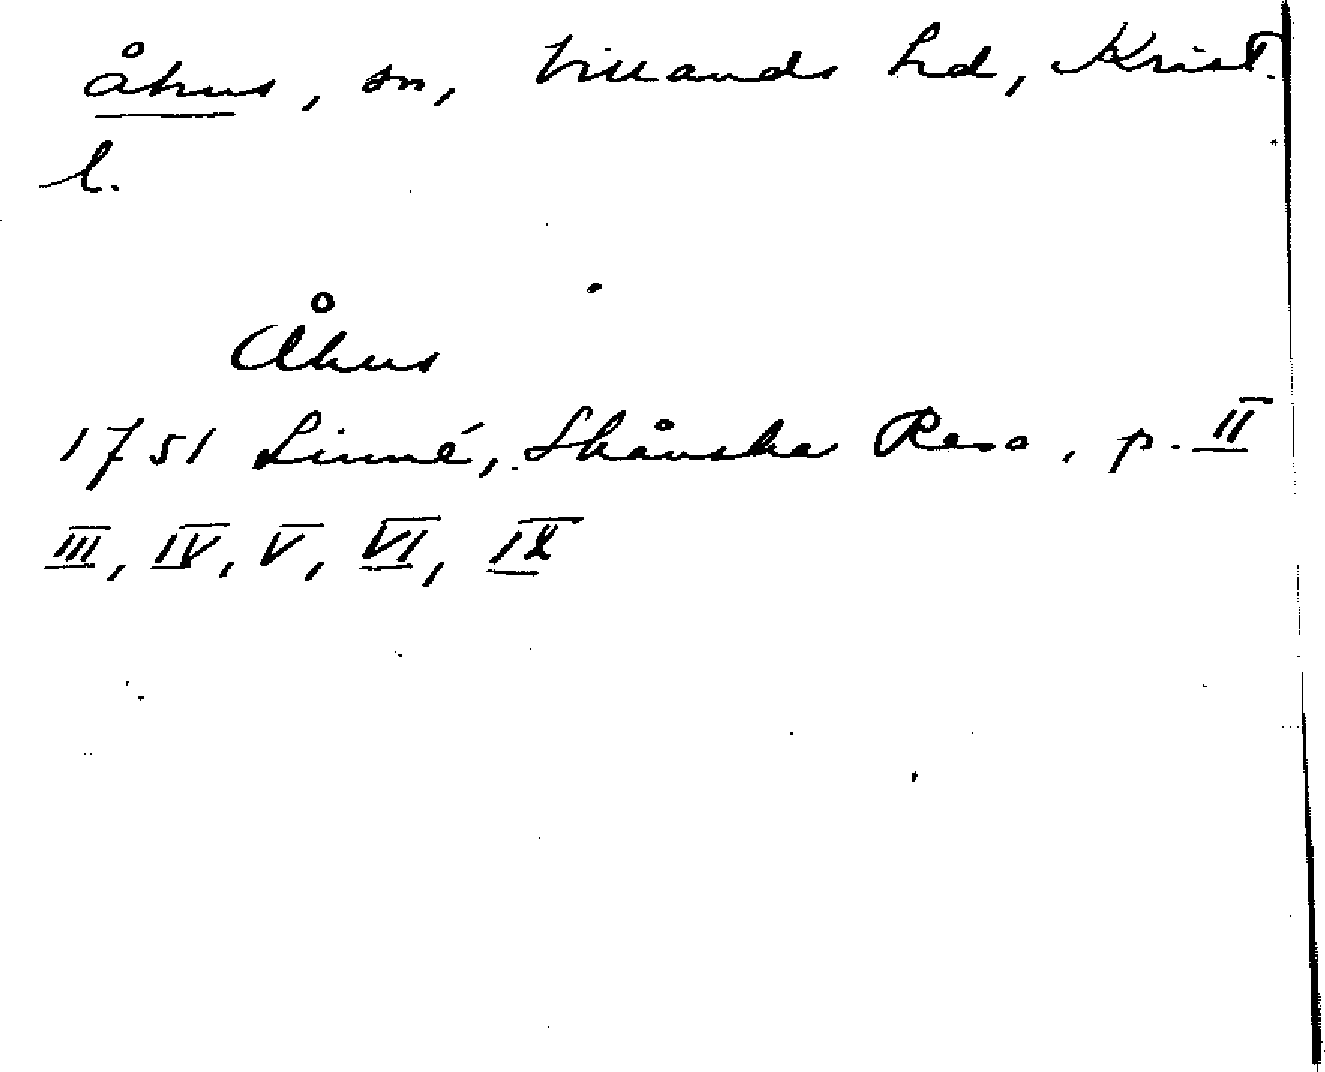 Åhus, sn, Villands hd, Krist.
l.
Åhus
1751 Linné, Skånska Resa, p. II
III, IV, V, VI, IX